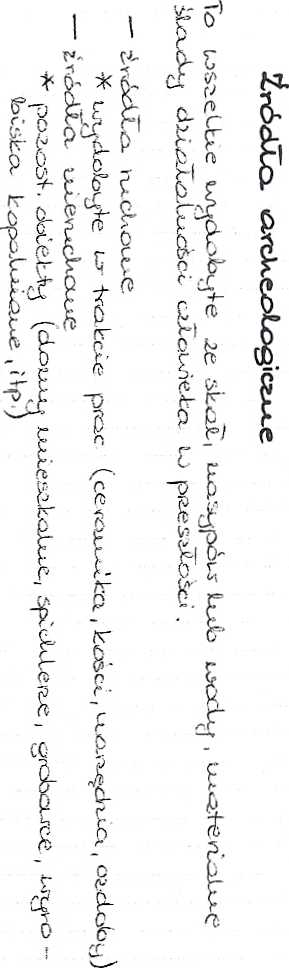 Źródła archeologiczne
To wszelkie wydobyte ze skał, nasypów lub wody, materialne
ślady działalności człowieka w przeszłości.
– źródła ruchome
* wydobyte w trakcie prac (ceramika, kości, narzędzia, ozdoby)
– źródła nieruchome
* pozost. obiekty (domy mieszkalne, spichlerze, grobowce, wyro-
biska kopalniane, itp.)